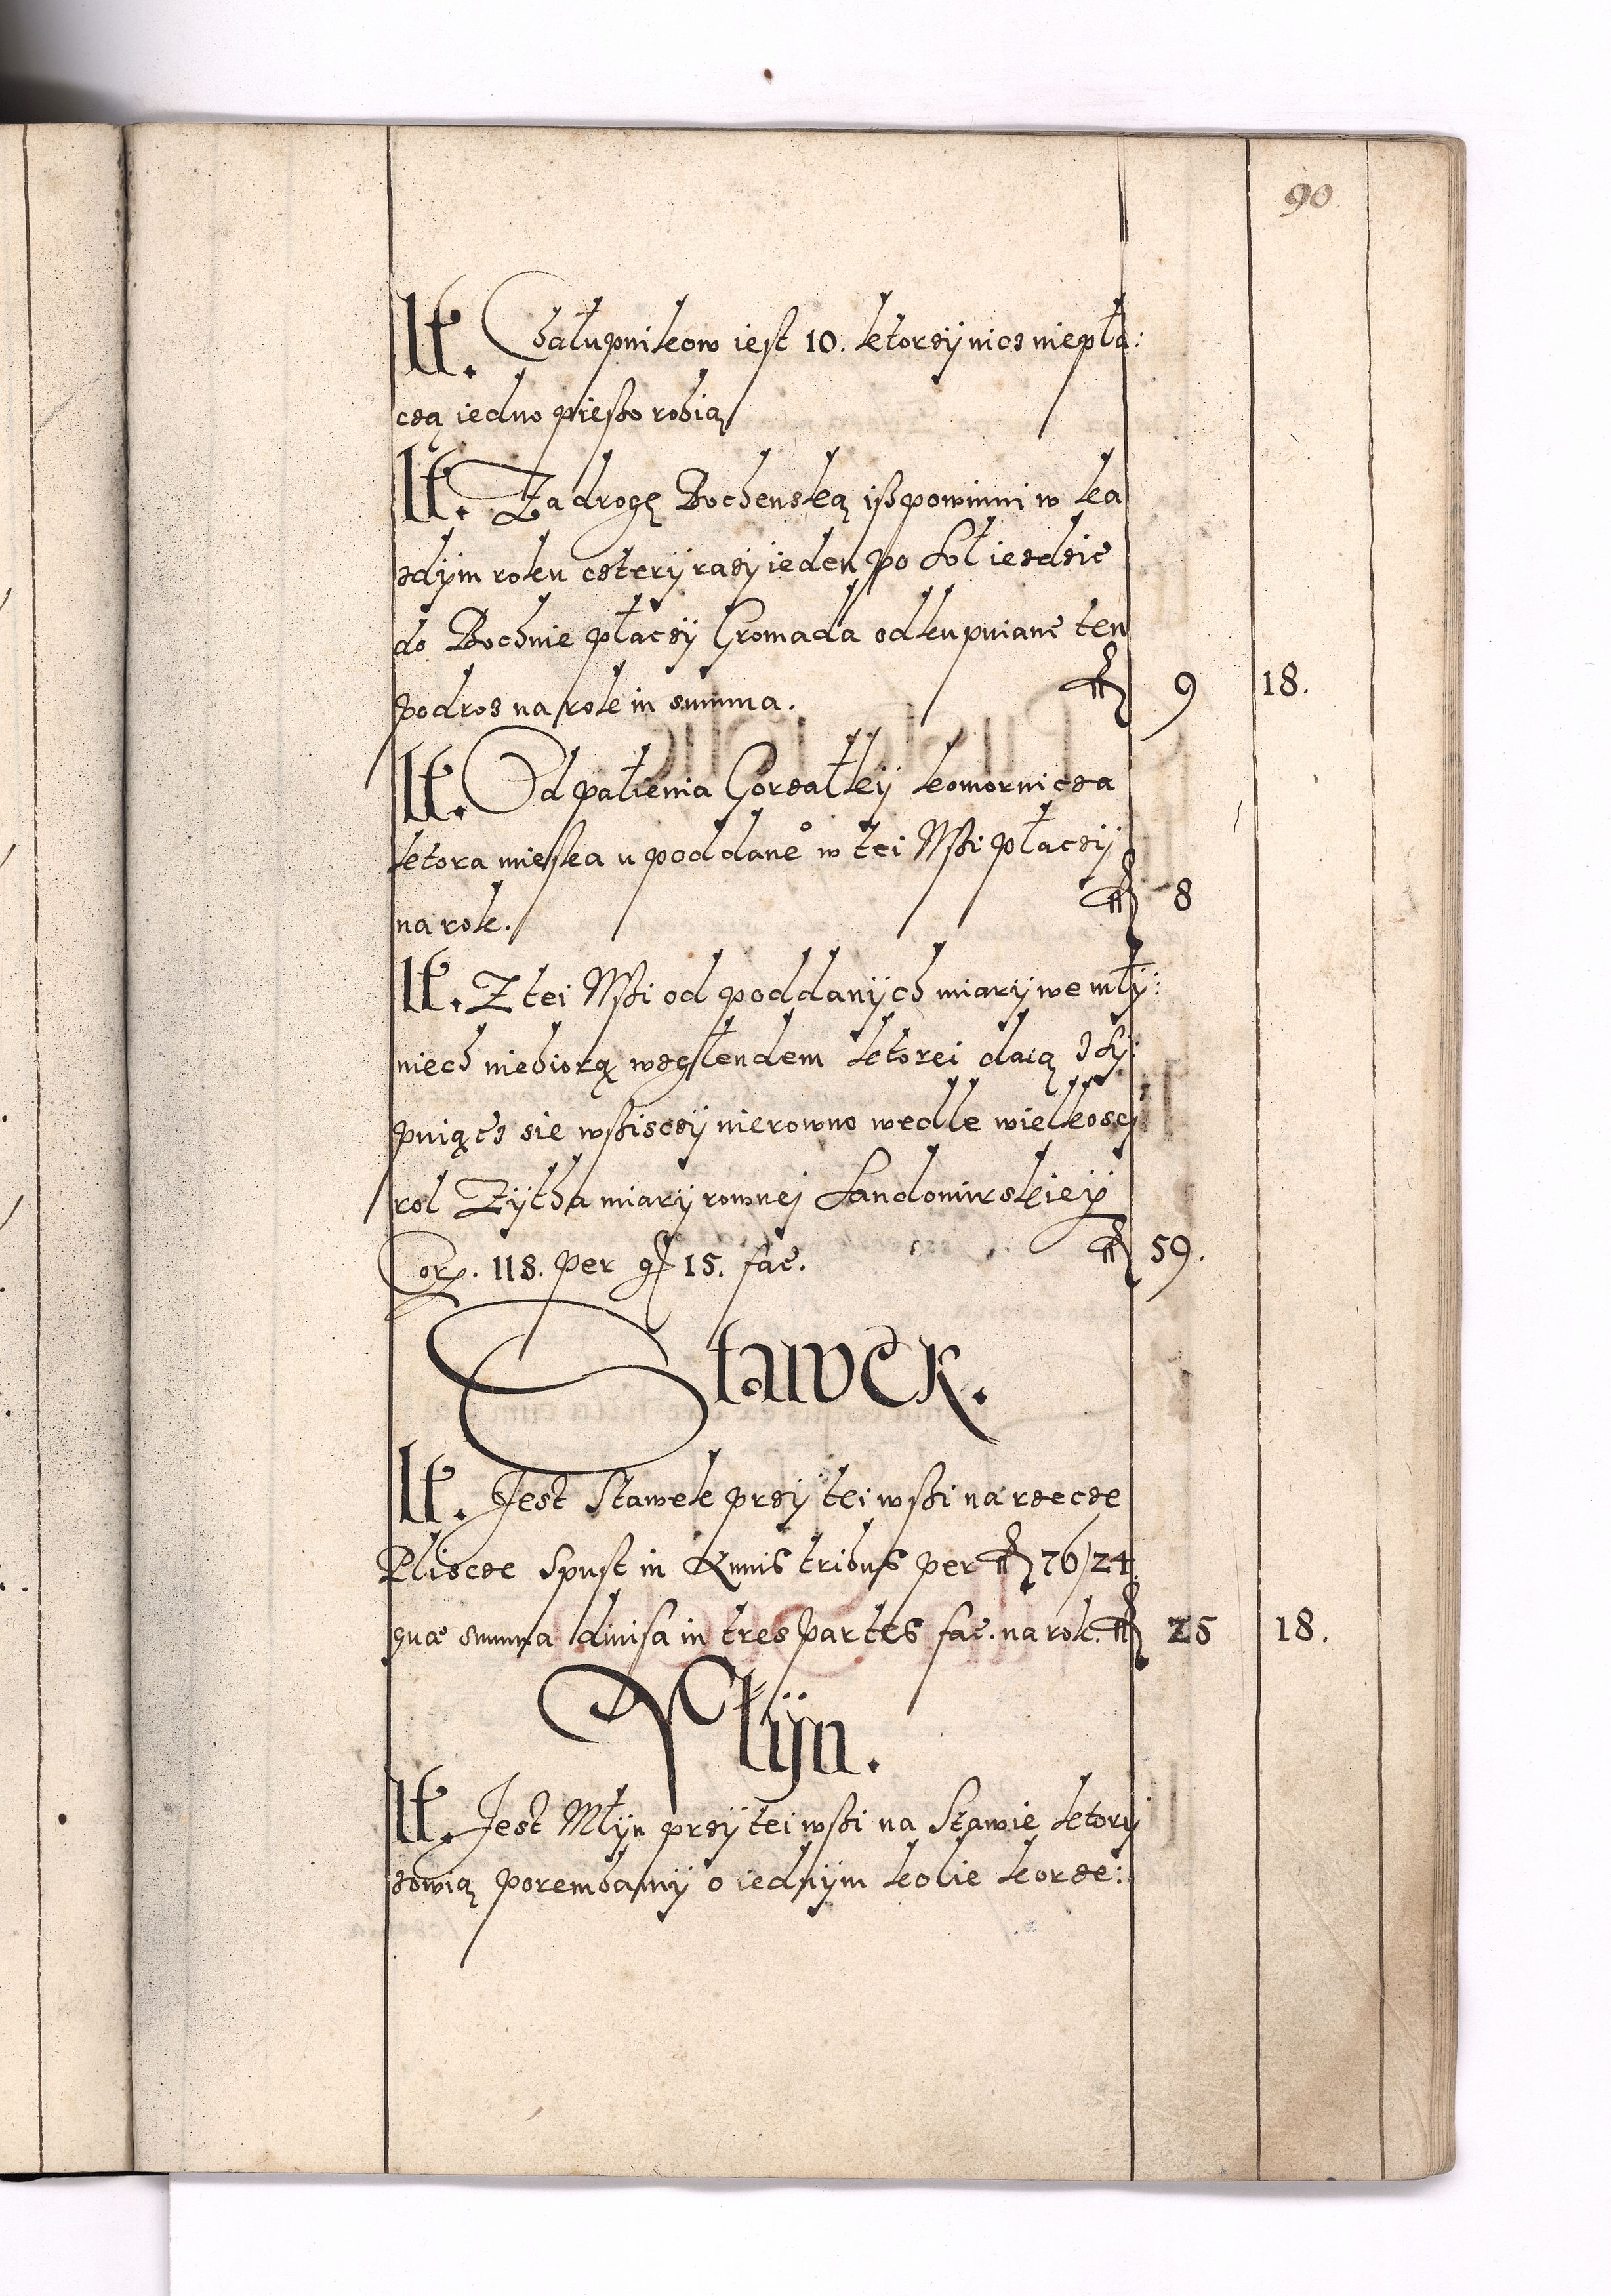 90
It. Chałupnikow iest 10. ktorzÿ nicz niepła:
czą iedno pießo robią
It. Za drogę Bochenską iß powinni w ka
zdÿm roku czterÿ razÿ ieden po Sol iezdzic
do Bochnie płaczÿ Gromada odkupuiane ten
podroz na rok in summa. ƒ 9 18.
It. Od palienia Gorzałkÿ komornicza
ktora mießka u poddane° w tei Wßi płaczÿ
na rok. ƒ 8
It. Z tei Wßi od poddanÿch miarÿ we młÿ:
niech niebiorą względem ktorei daią
pniącz sie wßisczÿ nierowno wedle wielkosci
rol Zÿtha miarÿ rownej Sandomirskieÿ
Cor. 118. per gr 15. fac. ƒ 59.
Stawek.
It. Jest Stawek przÿ tei wßi na rzecze
Pliszcze Spust in Annis tribus per ƒ 76/24
quæ summa diuisa in tres partes fac. na rok. ƒ 25 18.
Młÿn.
It. Jest Młÿn przÿ tei wßi na Stawie ktorÿ
zowią porembamÿ o iednÿm kolie korze: